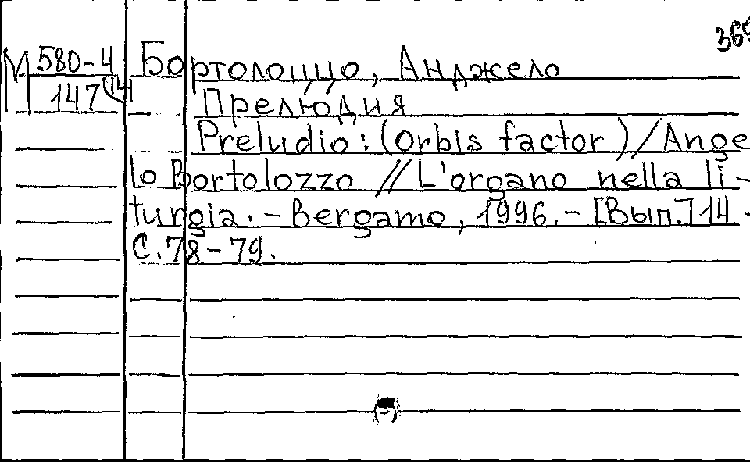 369
М 580-4 Бортолоццо, Анджело
147(14) Прелюдия
Preludio: (Orbis factor) / Ange
lo Bortolozzo // L'organo nella li-
turgia. - Bergamo, 1996. - [Вып.] 14 -
С. 78 - 79.
(-)